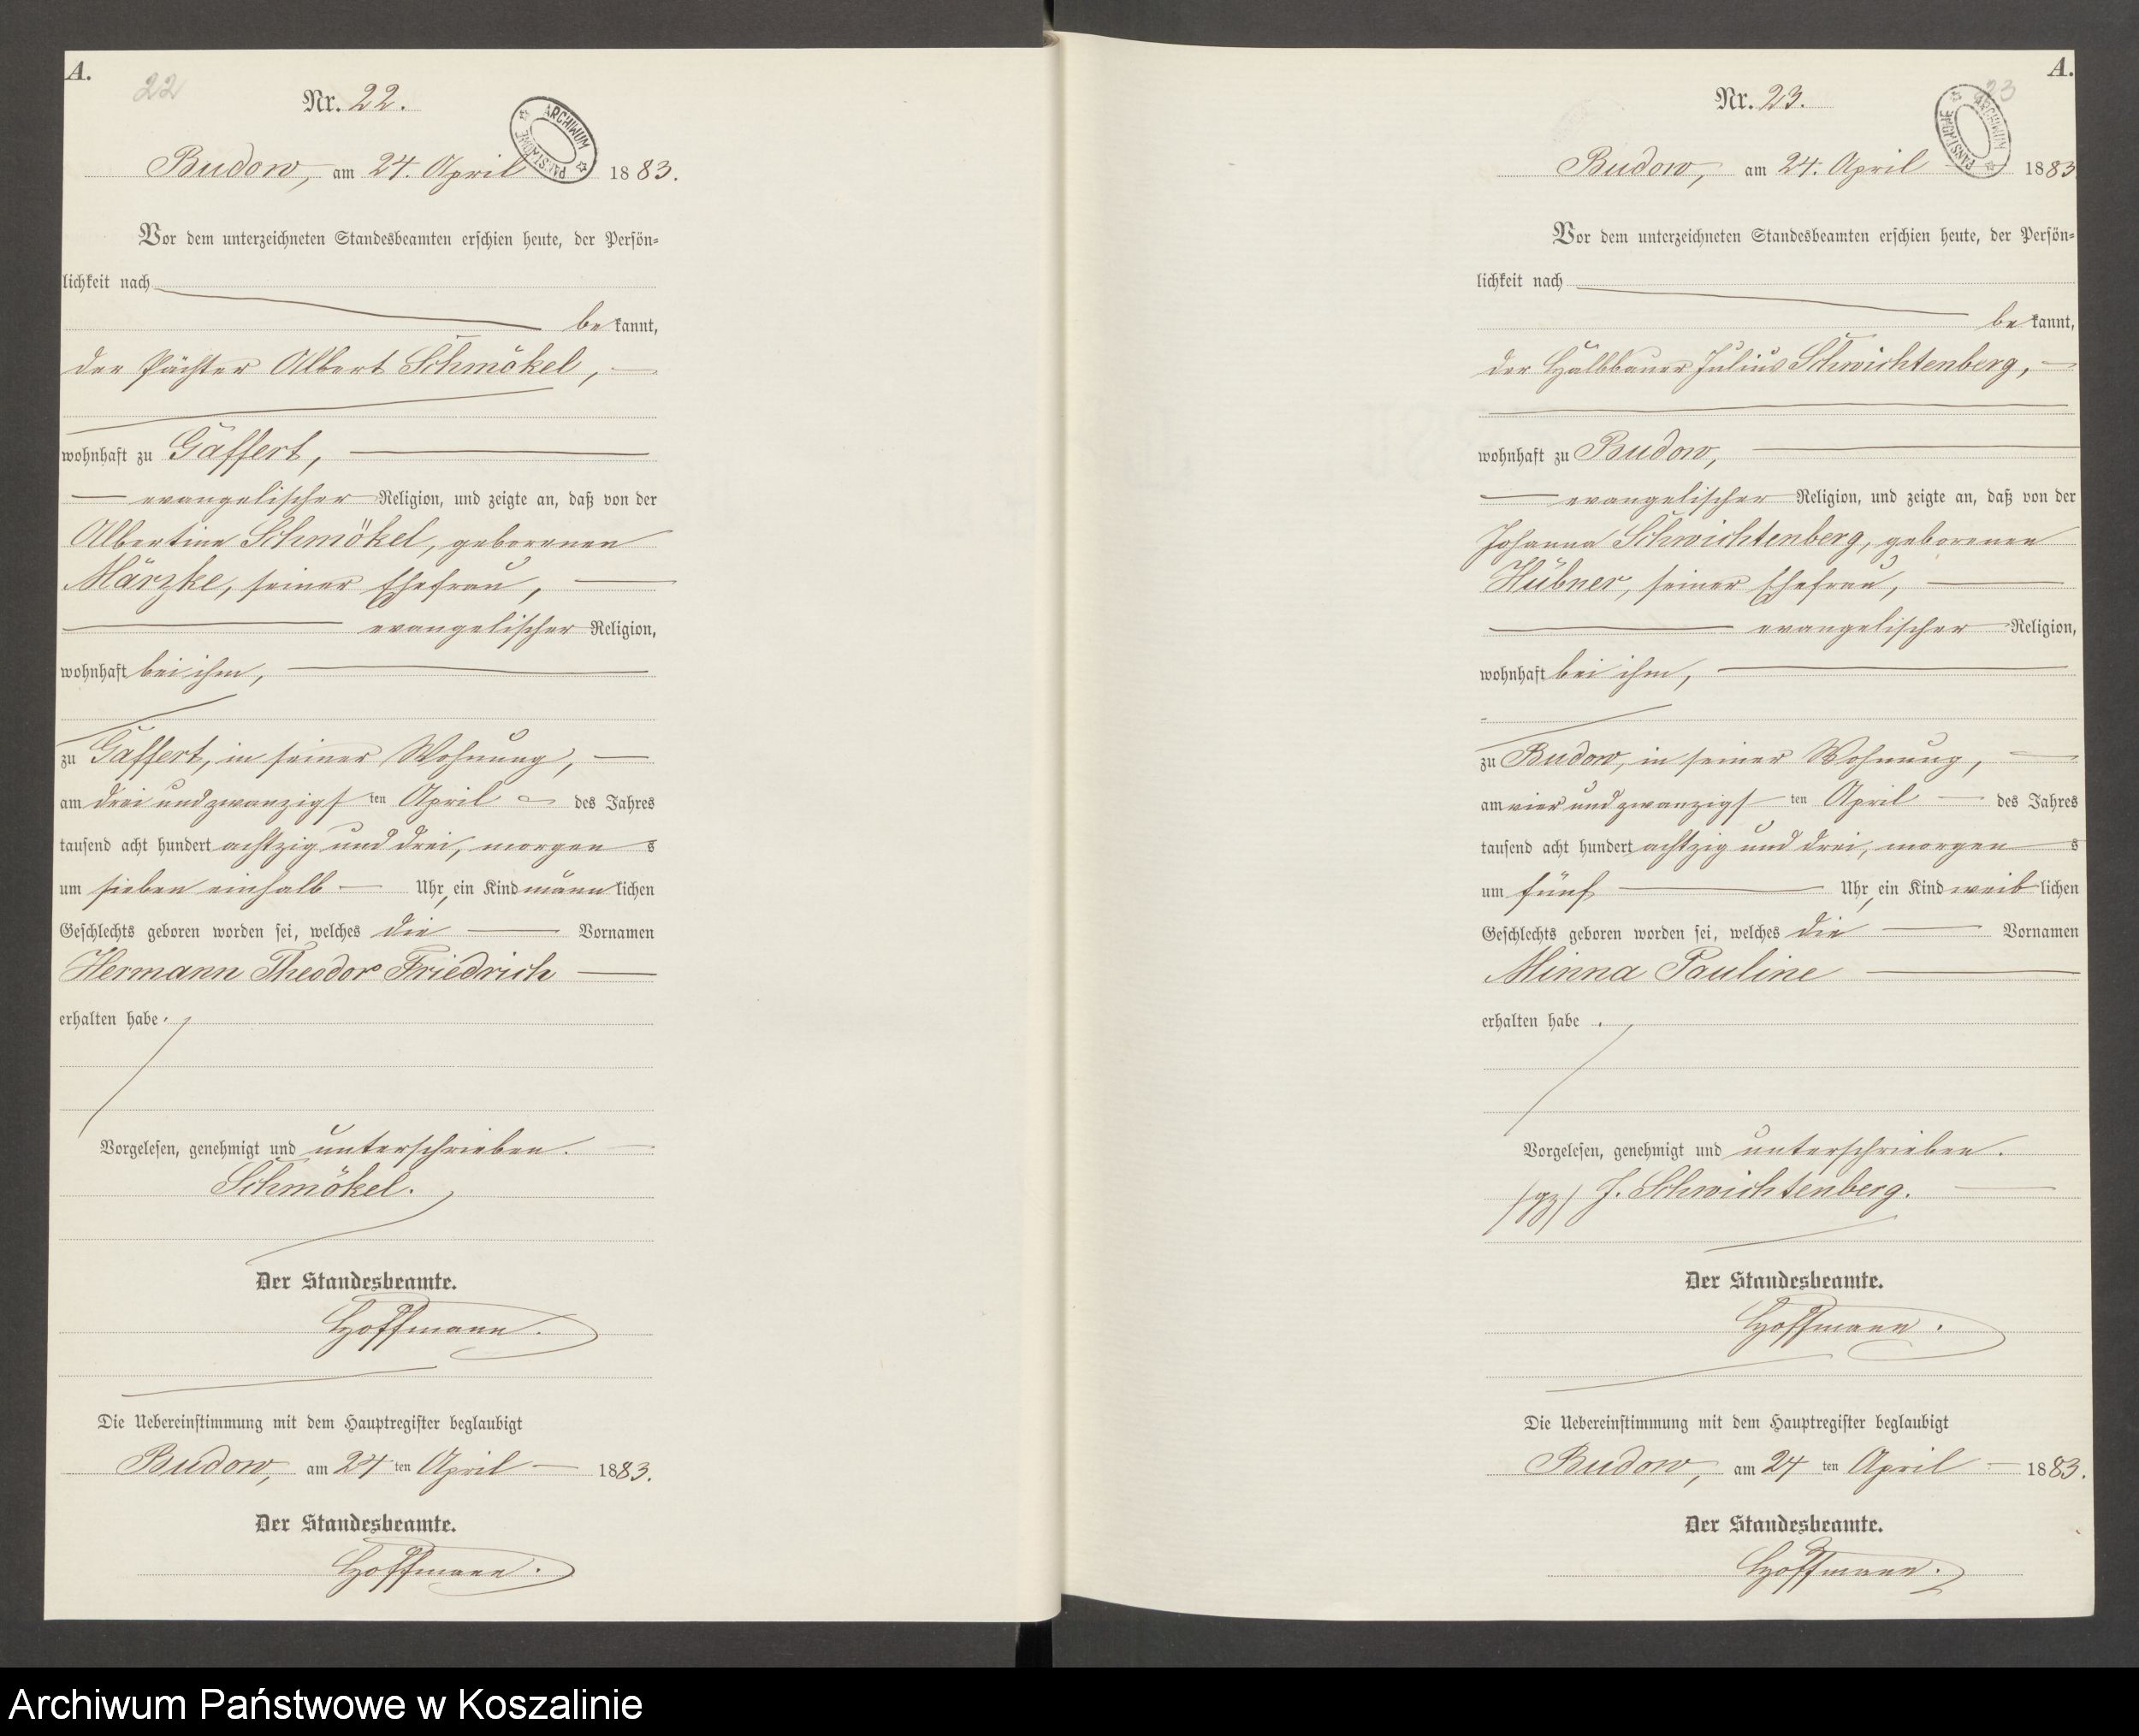 A.
22
Nr. 22.
ARCHIWUM PAŃSTWOWE
Budow, am 24. April 1883.
Vor dem unterzeichneten Standesbeamten erschien heute, der Persön=
lichkeit nach
bekannt,
der Pächter Albert Schmökel,
wohnhaft zu Gaffert,
evangelischer Religion, und zeigte an, daß von der
Albertine Schmökel, geborenen
Märzke, seiner Ehefrau,
evangelischer Religion,
wohnhaft bei ihm,
zu Gaffert, in seiner Wohnung,
am drei und zwanzigsten April des Jahres
tausend acht hundert achtzig und drei, morgens
um sieben einhalb Uhr, ein Kind männlichen
Geschlechts geboren worden sei, welches die Vornamen
Hermann Theodor Friedrich
erhalten habe.
Vorgelesen, genehmigt und unterschrieben.
Schmökel.
Der Standesbeamte.
Hoffmann.
Die Uebereinstimmung mit dem Hauptregister beglaubigt
Budow, am 24ten April 1883.
Der Standesbeamte.
Hoffmann.
A.
23
Nr. 23.
ARCHIWUM PAŃSTWOWE
Budow, am 24. April 1883
Vor dem unterzeichneten Standesbeamten erschien heute, der Persön=
lichkeit nach
bekannt,
der Halbbauer Julius Schwichtenberg,
wohnhaft zu Budow,
evangelischer Religion, und zeigte an, daß von der
Johanna Schwichtenberg, geborenen
Hübner, seiner Ehefrau,
evangelischer Religion,
wohnhaft bei ihm,
zu Budow, in seiner Wohnung,
am vier und zwanzigsten April des Jahres
tausend acht hundert achtzig und drei, morgens
um fünf Uhr, ein Kind weiblichen
Geschlechts geboren worden sei, welches die Vornamen
Minna Pauline
erhalten habe.
Vorgelesen, genehmigt und unterschrieben.
/gz/ J. Schwichtenberg.
Der Standesbeamte.
Hoffmann.
Die Uebereinstimmung mit dem Hauptregister beglaubigt
Budow, am 24ten April 1883.
Der Standesbeamte.
Hoffmann.
Archiwum Państwowe w Koszalinie